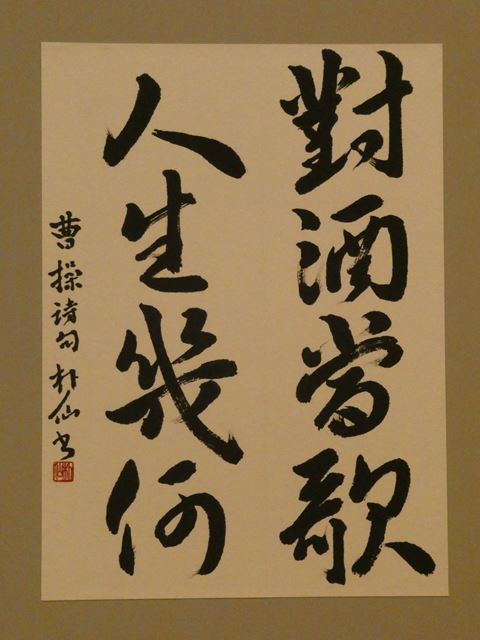 對酒當歌
人生幾何
曹操詩句朴仙书